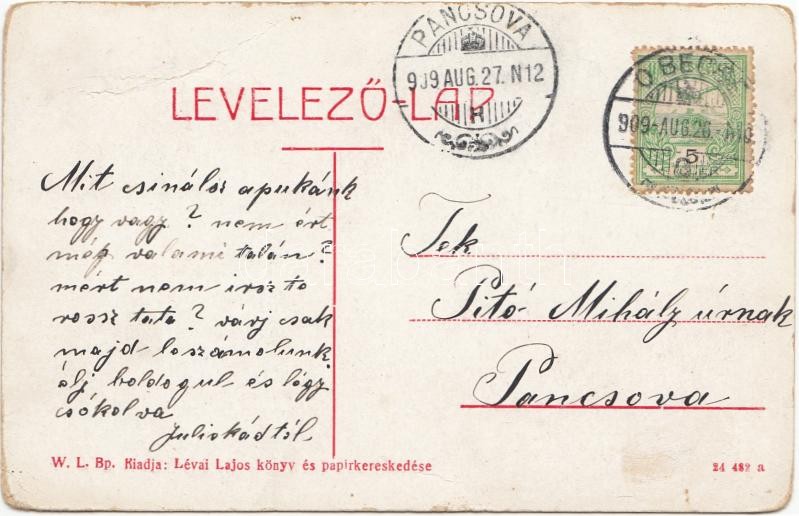 PANCSOVA
909 AUG. 27. N12
R
Ó BECSE
909-AUG. 26.
5
LEVELEZŐ-LAP
Mit csinálsz apukánk
hogy vagy? nem ért
még valami talán?
mért nem irsz te
rossz tata? várj csak
majd leszámolunk.
élj boldogul és légy
csókolva
Juliskádtól
Tek.
Pitó Mihály úrnak
Pancsova
W. L. Bp. Kiadja: Lévai Lajos könyv és papirkereskedése
24 482 a